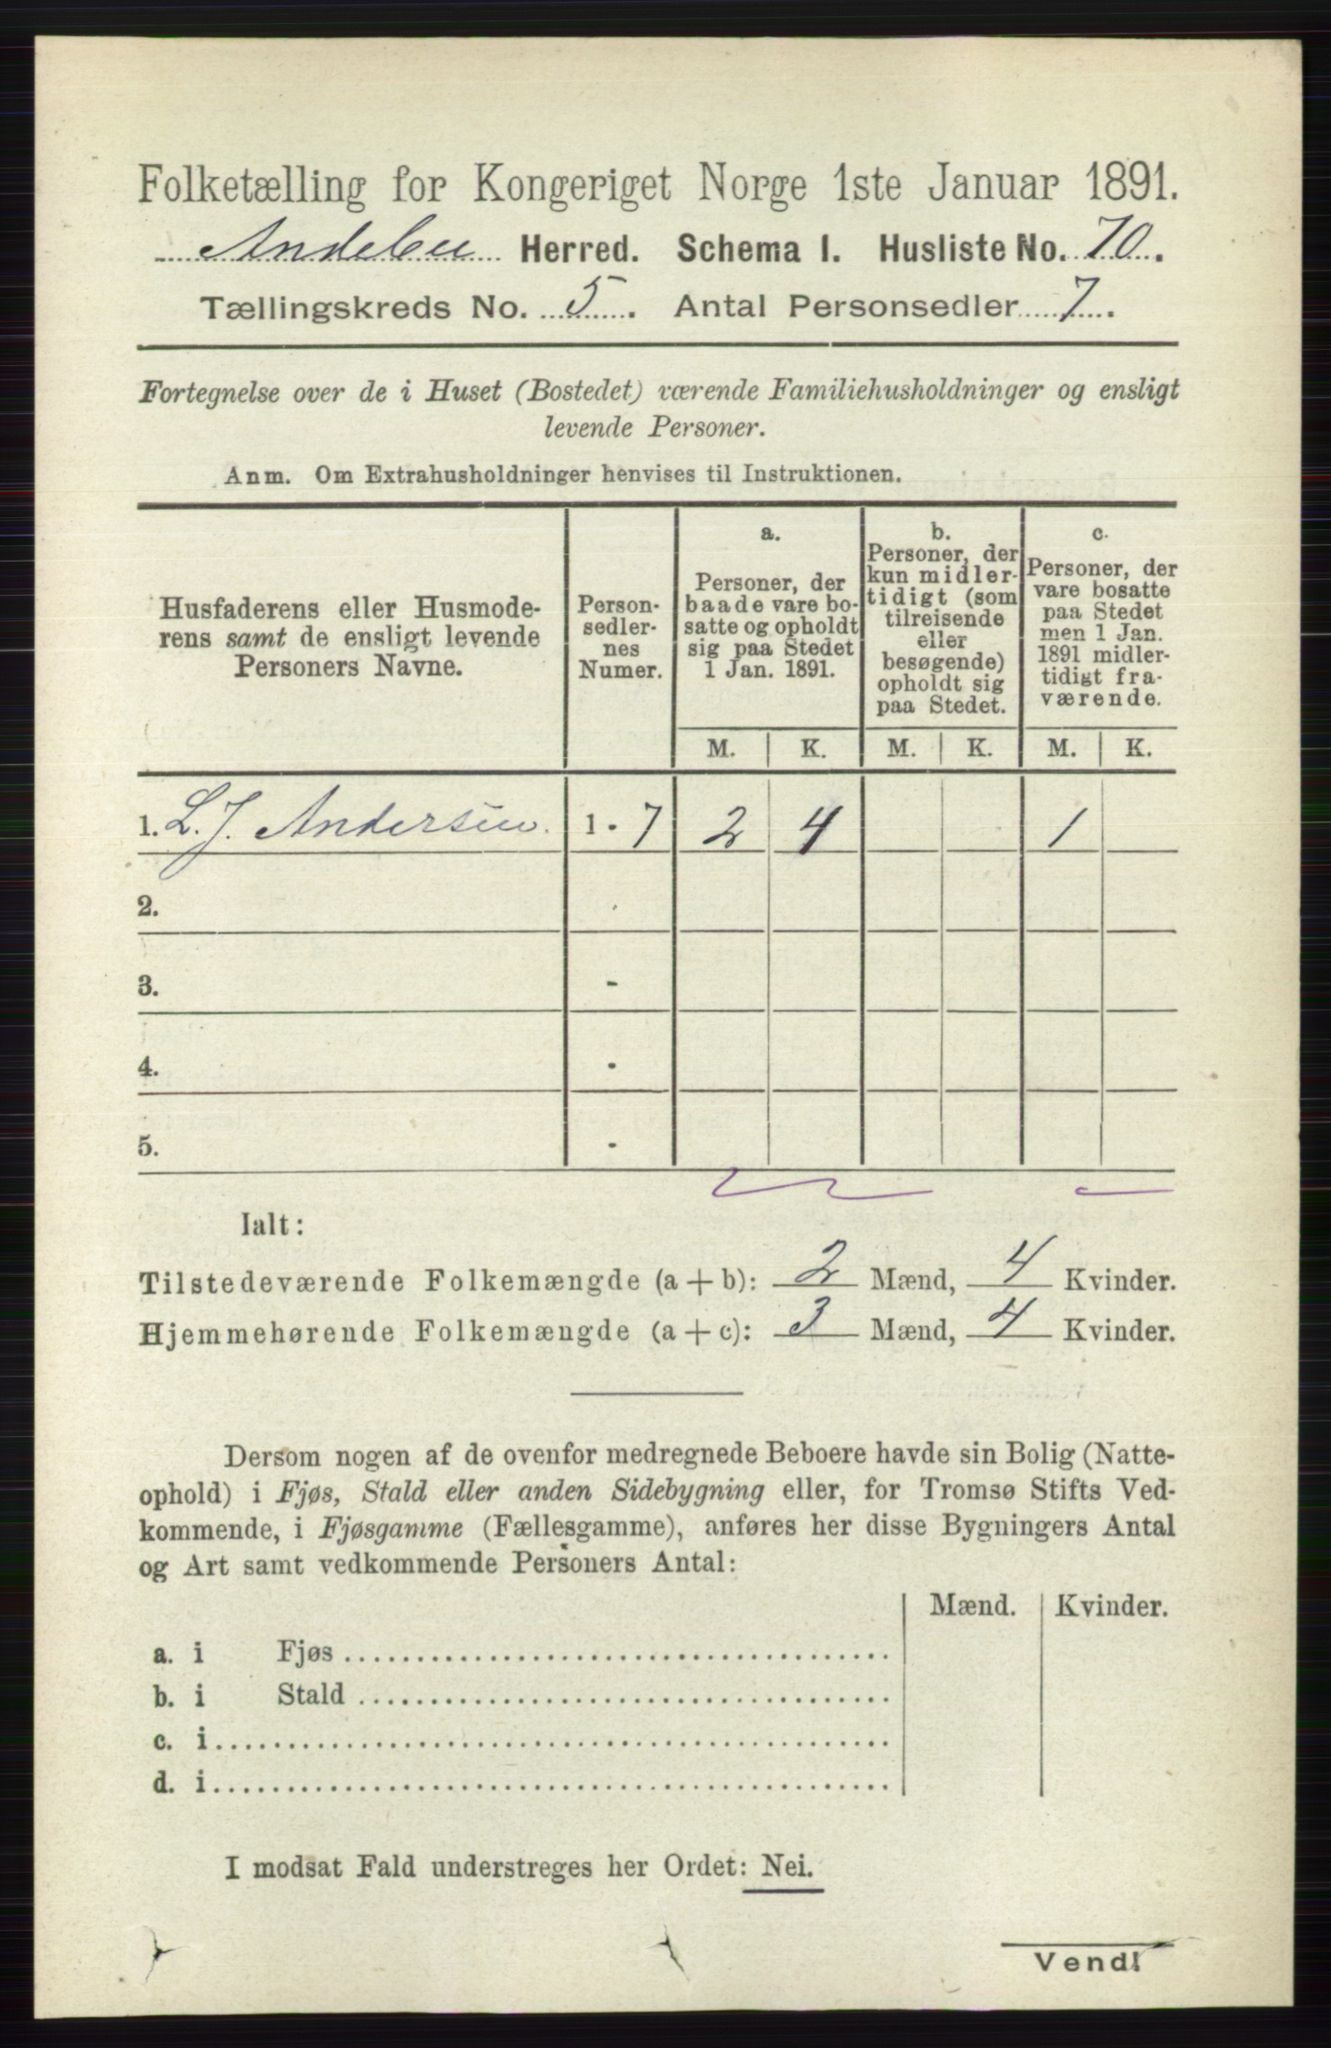 Folketælling for Kongeriget Norge 1ste Januar 1891.
Andebu Herred. Schema I. Husliste No. 70.
Tællingskreds No. 5. Antal Personsedler 7.
Fortegnelse over de i Huset (Bostedet) værende Familiehusholdninger og ensligt
levende Personer.
Anm. Om Extrahusholdninger henvises til Instruktionen.
Husfaderens eller Husmode-
rens samt de ensligt levende
Personers Navne.
Person-
sedler-
nes
Numer.
a.
Personer, der
baade vare bo-
satte og opholdt
sig paa Stedet
1 Jan. 1891.
b.
Personer, der
kun midler-
tidigt (som
tilreisende
eller
besøgende)
opholdt sig
paa Stedet.
c.
Personer, der
vare bosatte
paa Stedet
men 1 Jan.
1891 midler-
tidigt fra-
værende.
M. K. M. K. M. K.
1. L. J. Andersen. 1 - 7 2 4 1
2.
3. -
4. -
5. -
Ialt:
Tilstedeværende Folkemængde (a + b): 2 Mænd, 4 Kvinder.
Hjemmehørende Folkemængde (a + c): 3 Mænd, 4 Kvinder.
Dersom nogen af de ovenfor medregnede Beboere havde sin Bolig (Natte-
ophold) i Fjøs, Stald eller anden Sidebygning eller, for Tromsø Stifts Ved-
kommende, i Fjøsgamme (Fællesgamme), anføres her disse Bygningers Antal
og Art samt vedkommende Personers Antal:
Mænd. Kvinder.
a. i Fjøs
b. i Stald
c. i
d. i
I modsat Fald understreges her Ordet: Nei.
Vend!